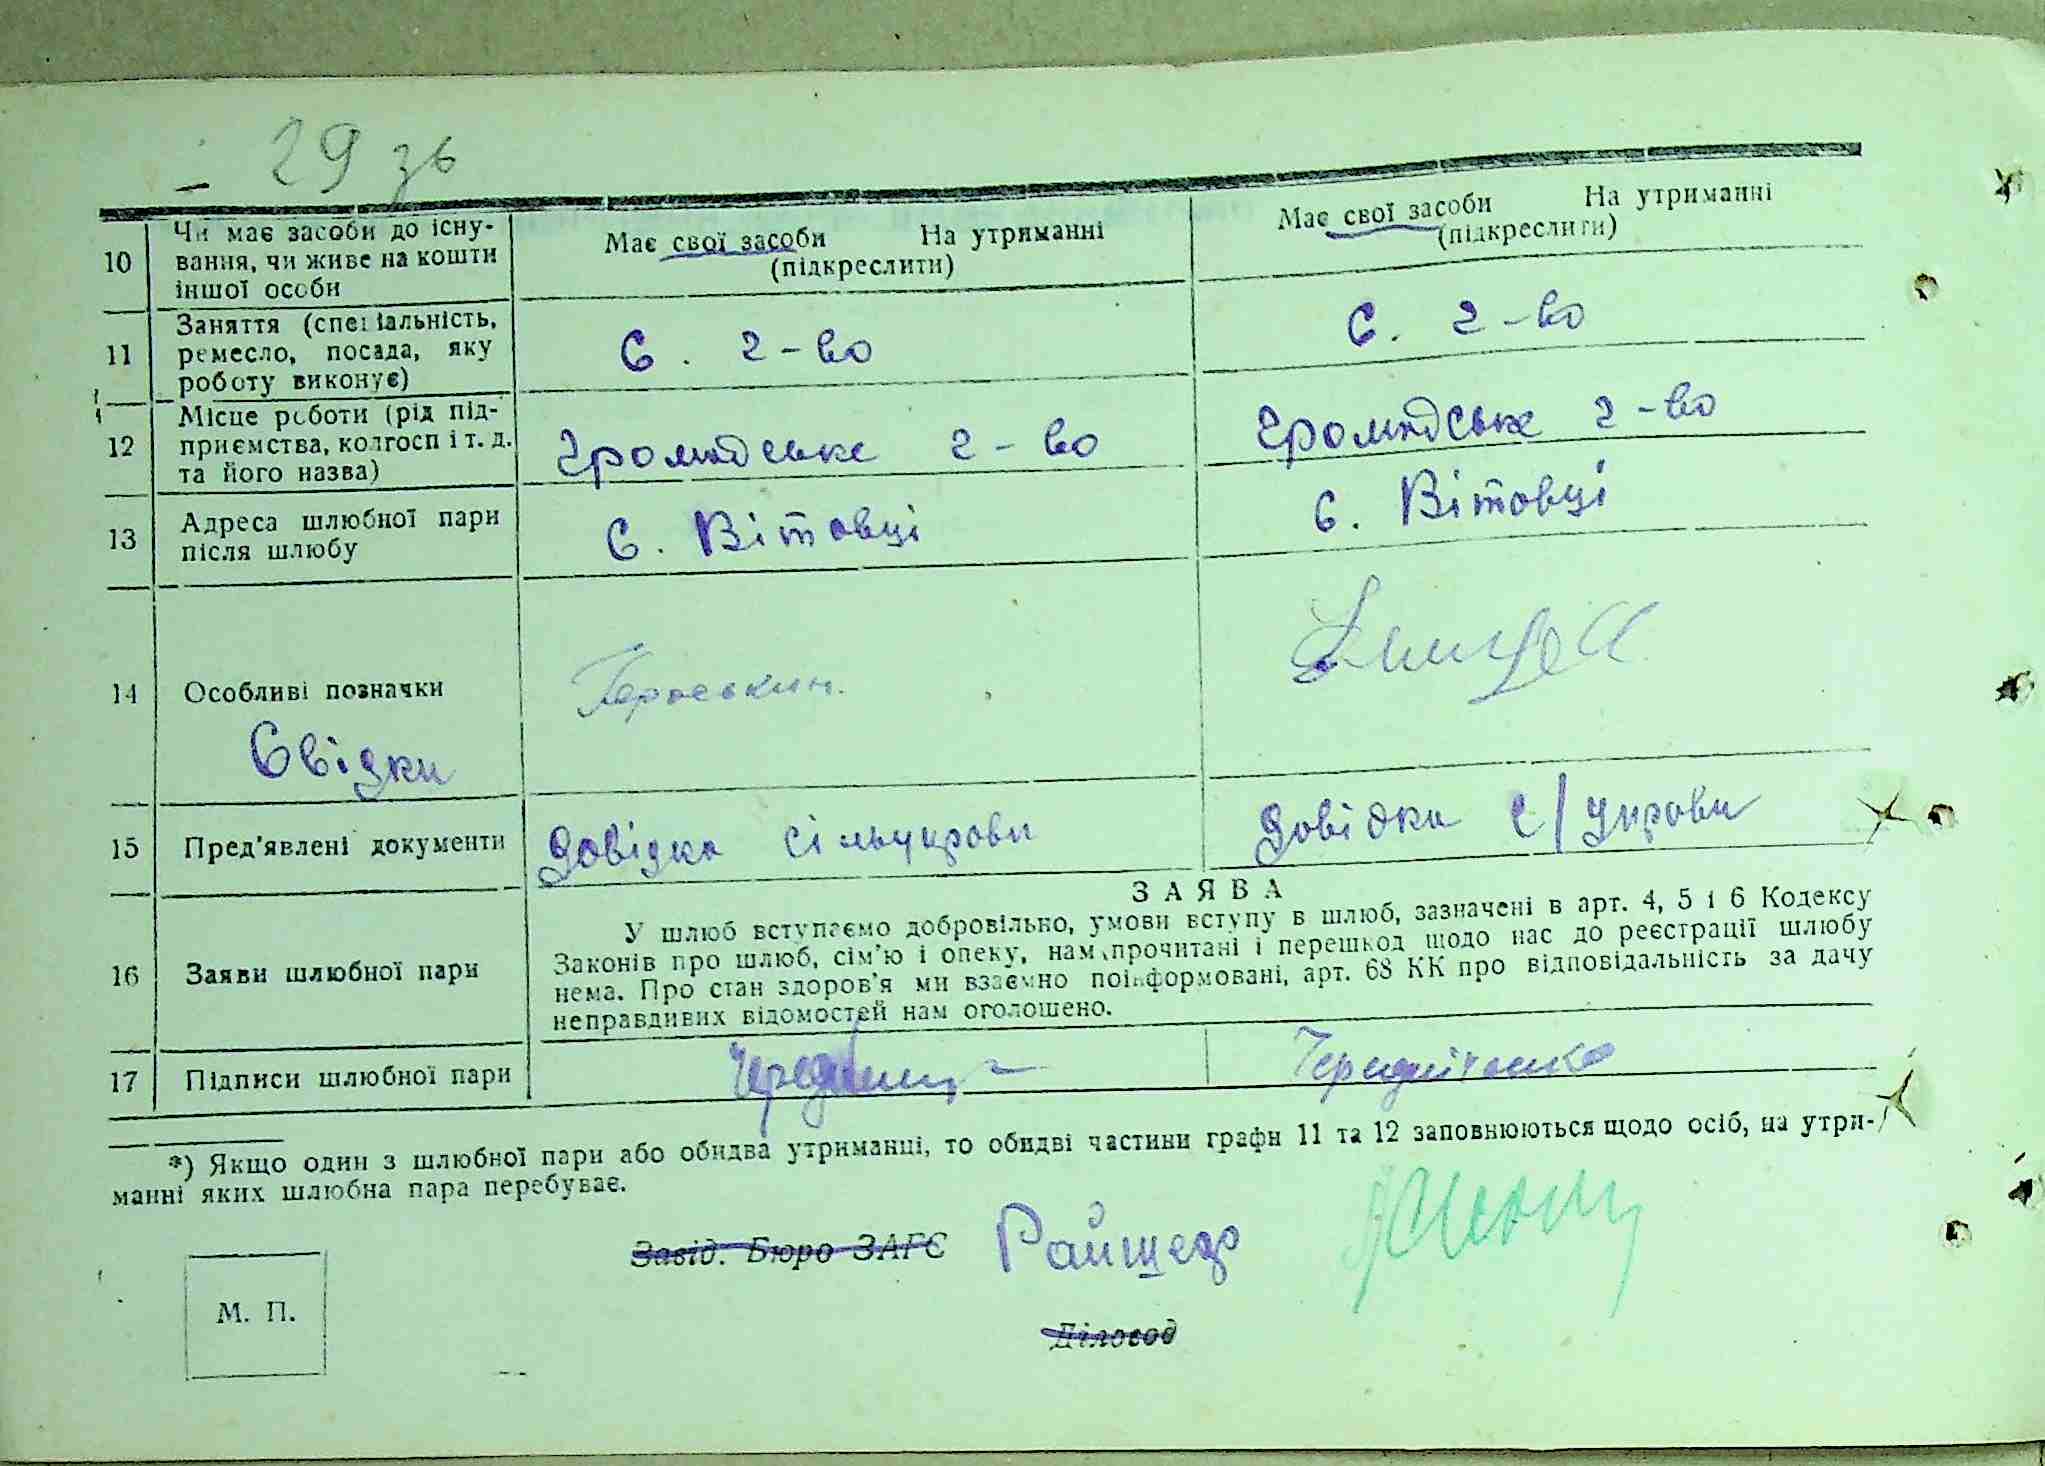 29 зв
10 Чи має засоби до існу-
вання, чи живе на кошти
іншої особи
Має свої засоби На утриманні
(підкреслити)
Має свої засоби На утриманні
(підкреслити)
11 Заняття (спеціальність,
ремесло, посада, яку
роботу виконує)
С. г-во
С. г-во
12 Місце роботи (рід під-
приємства, колгосп і т. д.
та його назва)
Громадське г-во
Громадське г-во
13 Адреса шлюбної пари
після шлюбу
С. Вітовці
С. Вітовці
14 Особливі позначки
Свідки
15 Пред'явлені документи
Довідка сільуправи
Довідка с/управи
16 Заяви шлюбної пари
ЗАЯВА
У шлюб вступаємо добровільно, умови вступу в шлюб, зазначені в арт. 4, 5 і 6 Кодексу
Законів про шлюб, сім'ю і опеку, нам прочитані і перешкод щодо нас до реєстрації шлюбу
нема. Про стан здоров'я ми взаємно поінформовані, арт. 68 КК про відповідальність за дачу
неправдивих відомостей нам оголошено.
17 Підписи шлюбної пари
Чередніченко
*) Якщо один з шлюбної пари або обидва утриманці, то обидві частини графи 11 та 12 заповнюються щодо осіб, на утри-
манні яких шлюбна пара перебуває.
Завід. Бюро ЗАГС
Діловод
М. П.